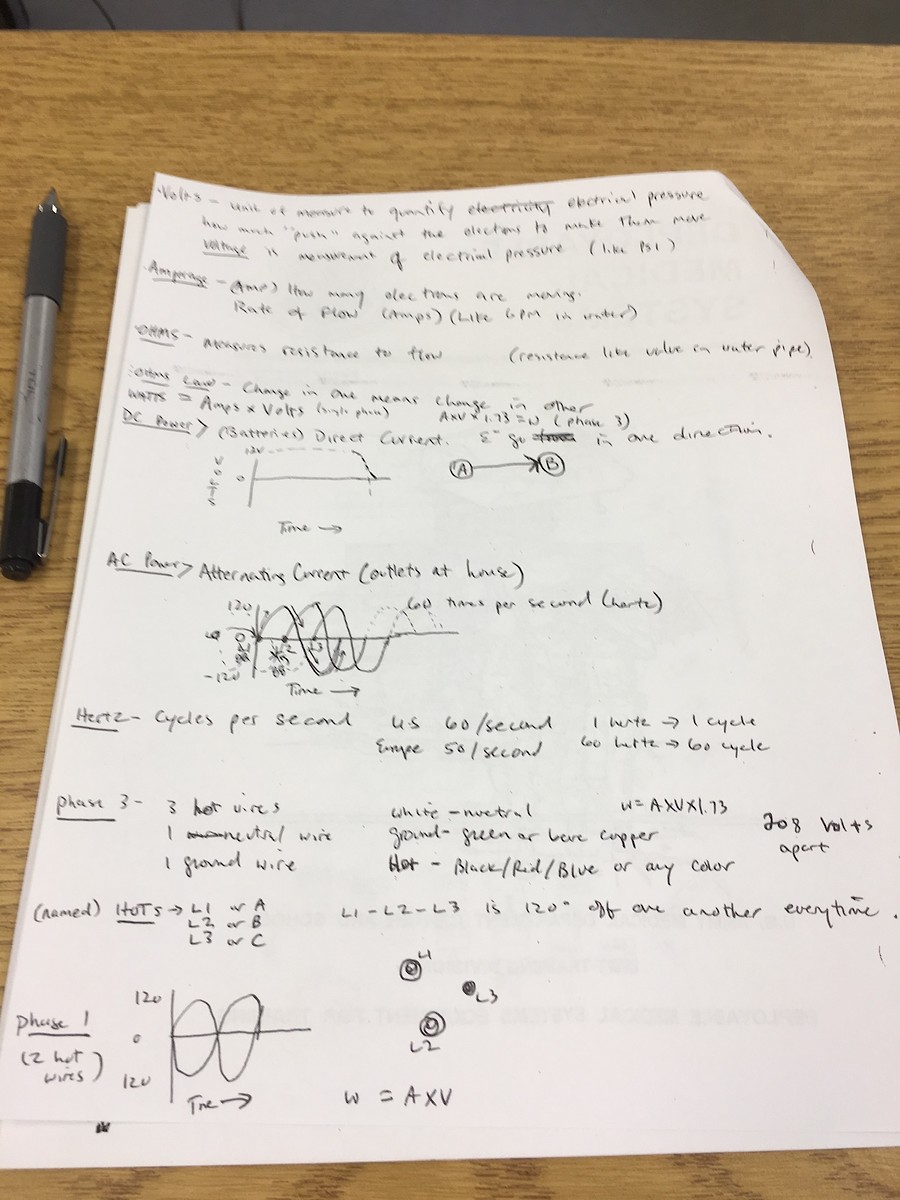 ·Volts - Unit of measure to quantify electricity electrical pressure
how much "push" against the electons to make them move
Voltage is measurement of electrical pressure (like PSI)
·Amperage - (Amp) How many electrons are moving.
Rate of flow (Amps) (Like GPM in water)
·OHMS - Measures resistance to flow (resistance like valve in water pipe)
·Ohms Law - Change in one means change in other
WATTS = Amps x Volts (single phase) AxV x 1.73 = W (phase 3)
DC Power > (Batteries) Direct Current. E⁻ go in one direction.
12V
VOLTS
0
A B
Time →
AC Power > Alternating Current (outlets at house)
120 60 times per second (hertz)
0
L2 L3
-120
Time →
Hertz - Cycles per second US 60/second 1 hertz → 1 cycle
Europe 50/second 60 hertz → 60 cycle
phase 3 - 3 hot wires white - nuetral W = AXVX1.73
1 neutral wire ground - green or bare copper 208 Volts
1 ground wire Hot - Black/Red/Blue or any color apart
(named) HOTS → L1 or A L1-L2-L3 is 120° off one another everytime.
L2 or B
L3 or C
L1
L3
L2
120
phase 1 0
(2 hot wires) 120
Time →
W = AXV